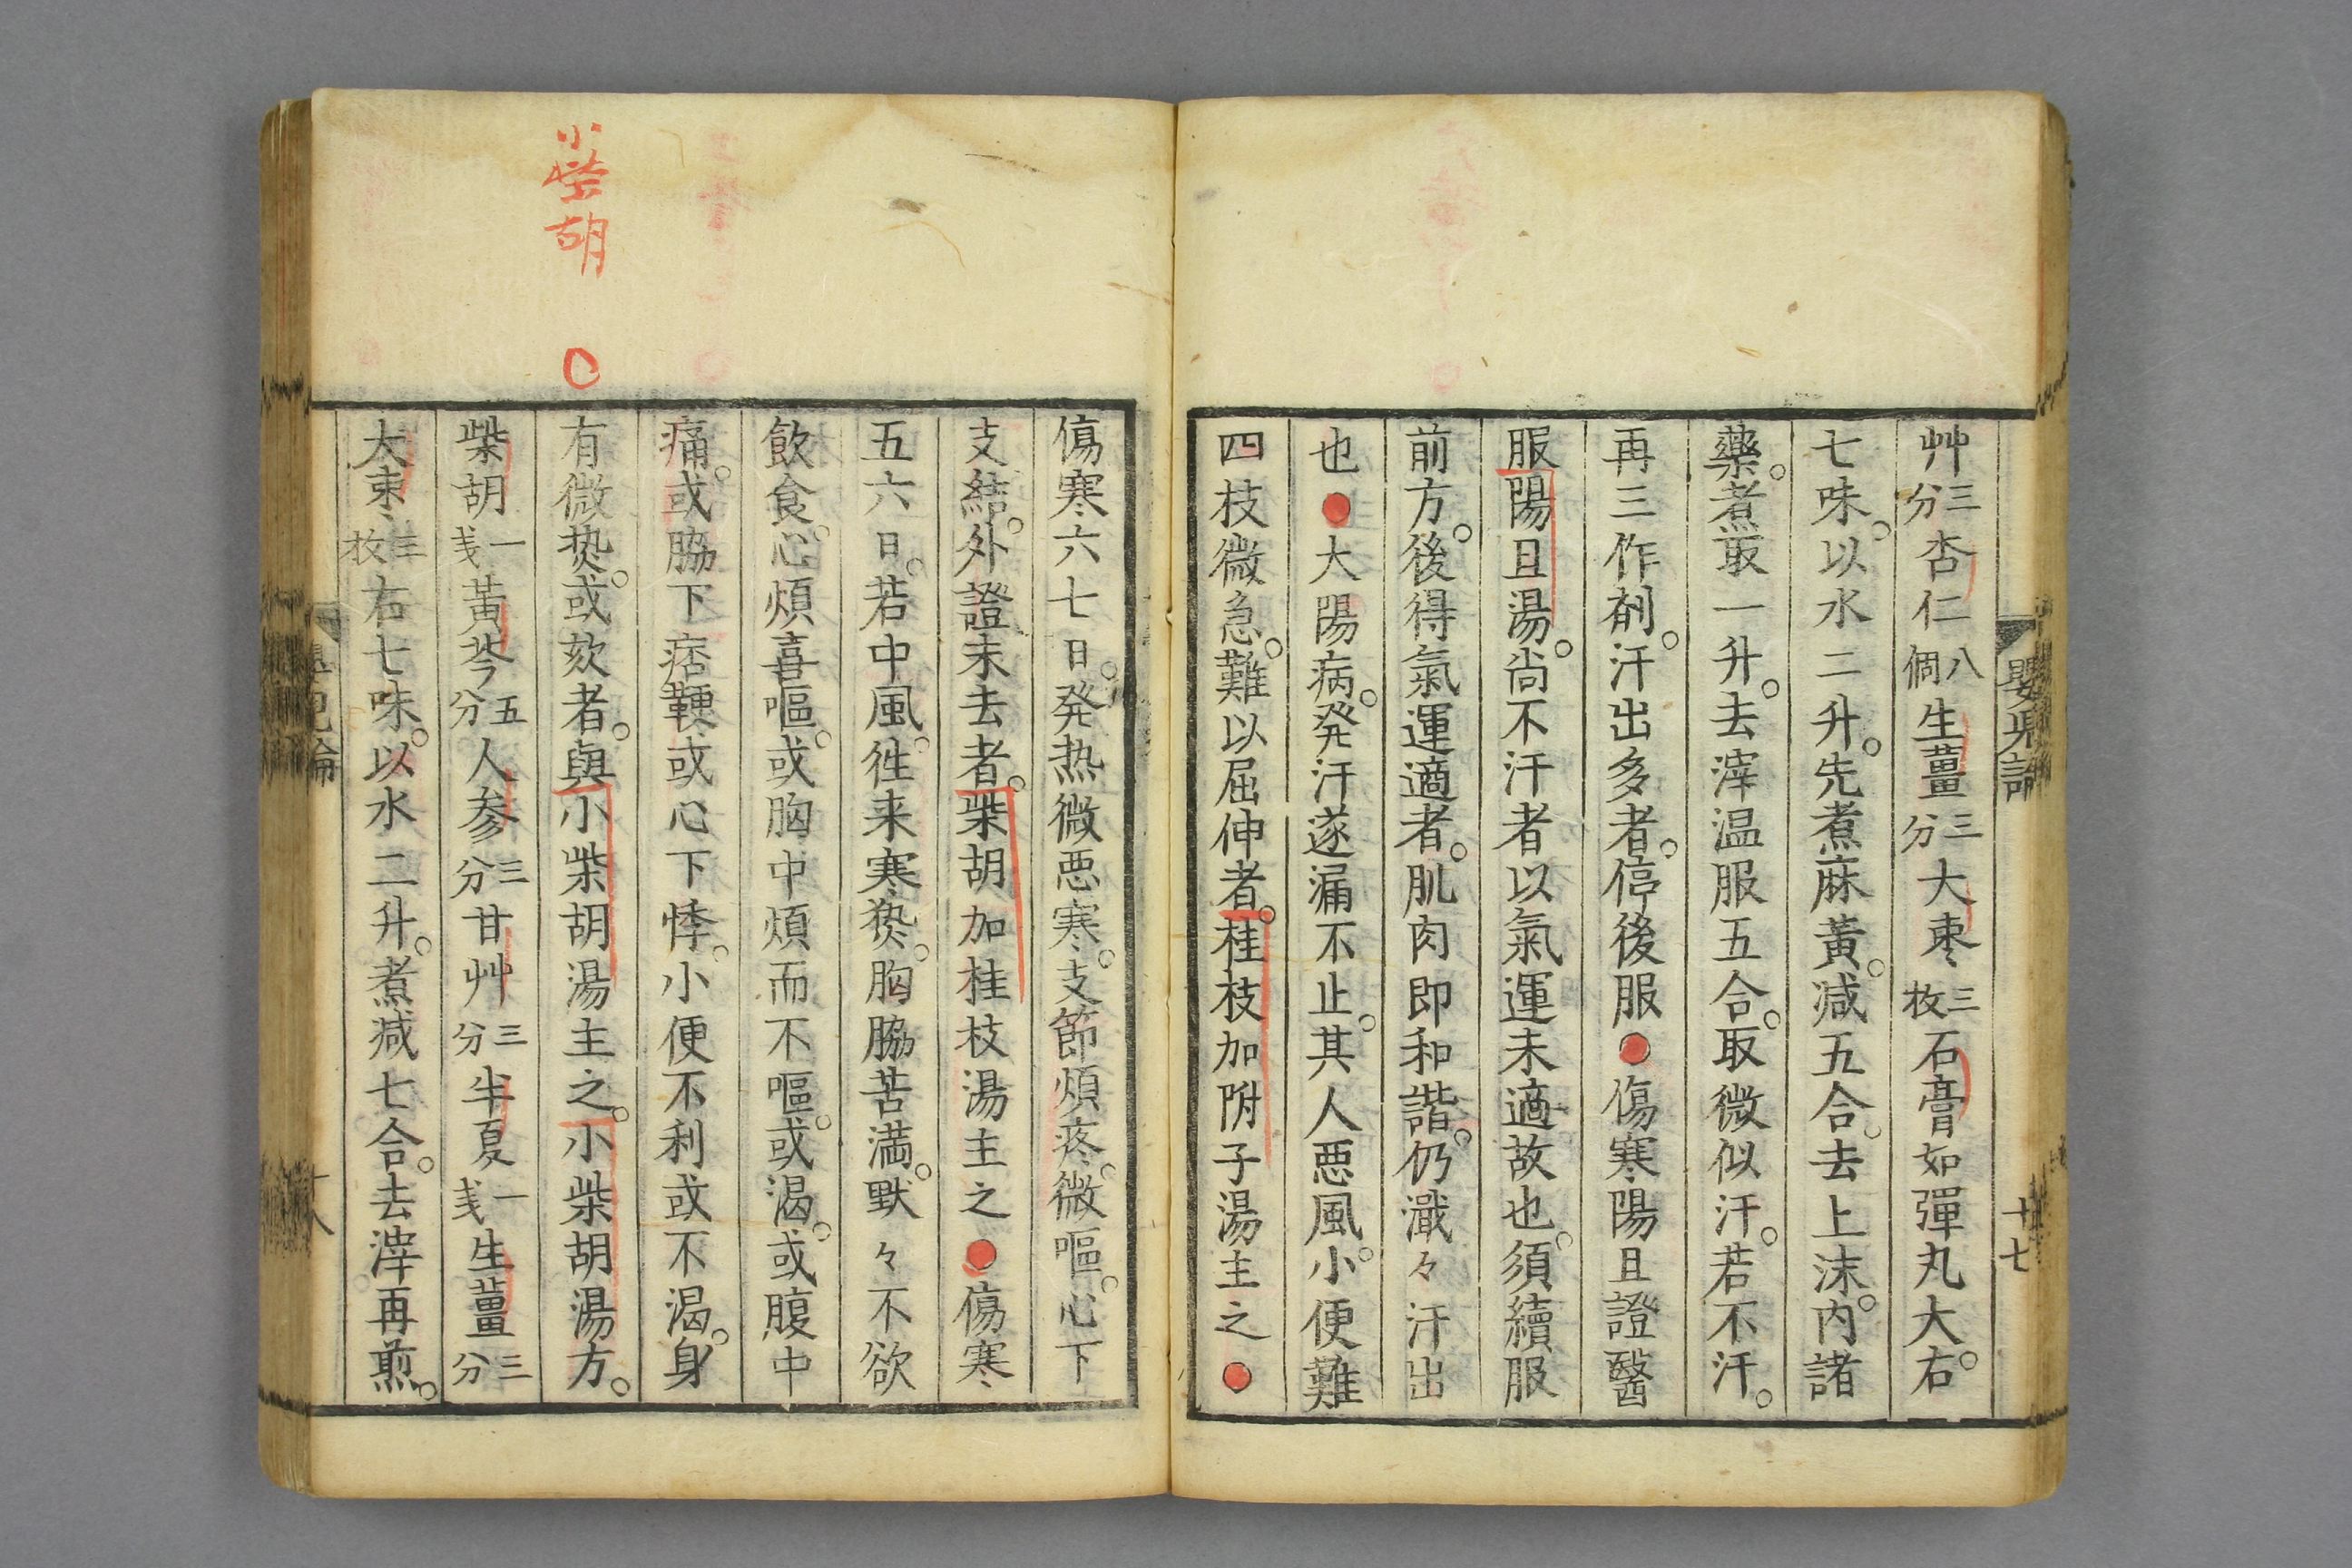 艸三分杏仁八個生薑三分大棗三枚石膏如彈丸大右。
七味。以水二升。先煮麻黃。減五合。去上沫。內諸
藥。煮取一升。去滓温服五合。取微似汗。若不汗。
再三作劑。汗出多者。停後服●傷寒陽旦證醫
服陽旦湯。尚不汗者以氣運未適故也。須續服
前方。後得氣運適者。肌肉即和諧。仍濈々汗出
也●大陽病。発汗遂漏不止。其人悪風。小便難
四枝微急。難以屈伸者。桂枝加附子湯主之●
十七
小柴胡
○
傷寒六七日。発热微悪寒。支節煩疼。微嘔。心下
支結。外證未去者。柴胡加桂枝湯主之●傷寒
五六日。若中風。徃来寒热。胸脇苦満。默々不欲
飲食。心煩喜嘔。或胸中煩而不嘔。或渴。或腹中
痛。或脇下痞鞕或心下悸。小便不利或不渴。身
有微热。或欬者。與小柴胡湯主之。小柴胡湯方。
柴胡一戋黃芩五分人參三分甘艸三分半夏一戋生薑三分
大棗三枚右七味。以水二升。煮減七合。去滓再煎。